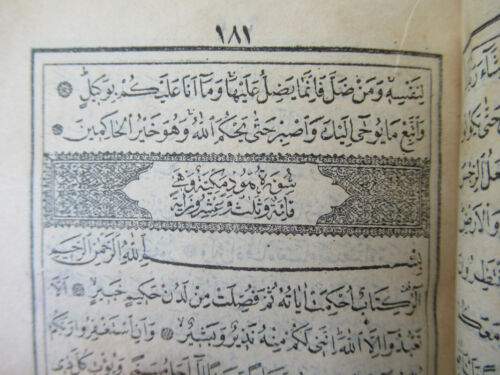 ١٨١
لِنَفْسِهِ وَمَنْ ضَلَّ فَاِنَّمَا يَضِلُّ عَلَيْهَا وَمَا اَنَا عَلَيْكُمْ بِوَكِيلٍ
وَاتَّبِعْ مَا يُوحٰى اِلَيْكَ وَاصْبِرْ حَتّٰى يَحْكُمَ اللّٰهُ وَهُوَ خَيْرُ الْحَاكِمِينَ
سُورَةُ هُودٍ مَكِّيَّةٌ وَهِيَ
مِائَةٌ وَثَلٰثٌ وَعِشْرُونَ اٰيَةً
بِسْمِ اللّٰهِ الرَّحْمٰنِ الرَّحِيمِ
الٓرٰ كِتَابٌ اُحْكِمَتْ اٰيَاتُهُ ثُمَّ فُصِّلَتْ مِنْ لَدُنْ حَكِيمٍ خَبِيرٍ اَلَّا
تَعْبُدُوا اِلَّا اللّٰهَ اِنَّنِي لَكُمْ مِنْهُ نَذِيرٌ وَبَشِيرٌ وَاَنِ اسْتَغْفِرُوا رَبَّكُمْ